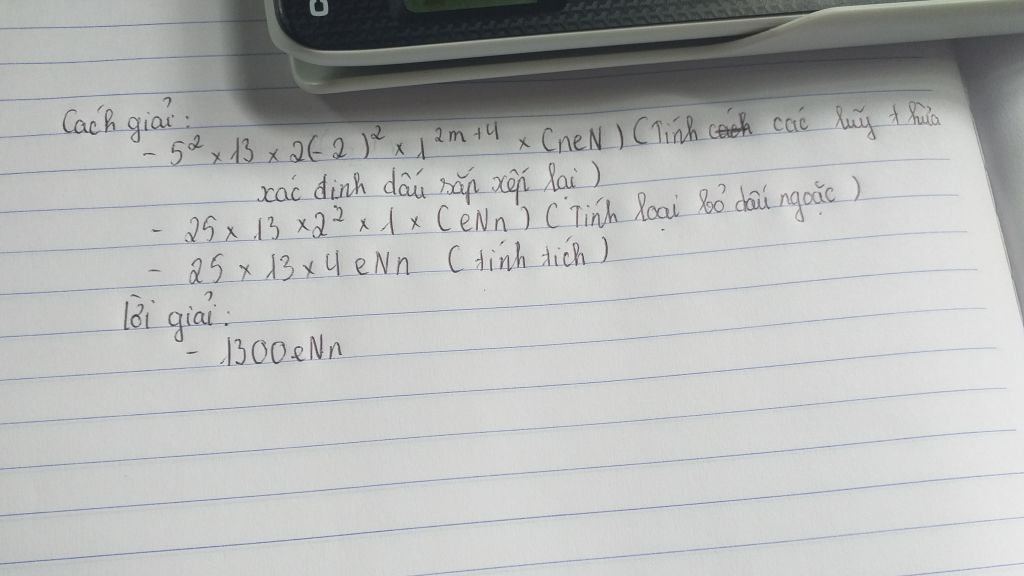 Cách giải:
- 5² × 13 × 2(-2)² × 1²ᵐ⁺⁴ × (neN) (Tính cách các luỹ thừa
xác định dấu sắp xếp lại)
- 25 × 13 × 2² × 1 × (eNn) (Tính loại bỏ dấu ngoặc)
- 25 × 13 × 4 eNn (tính tích)
lời giải:
- 1300eNn